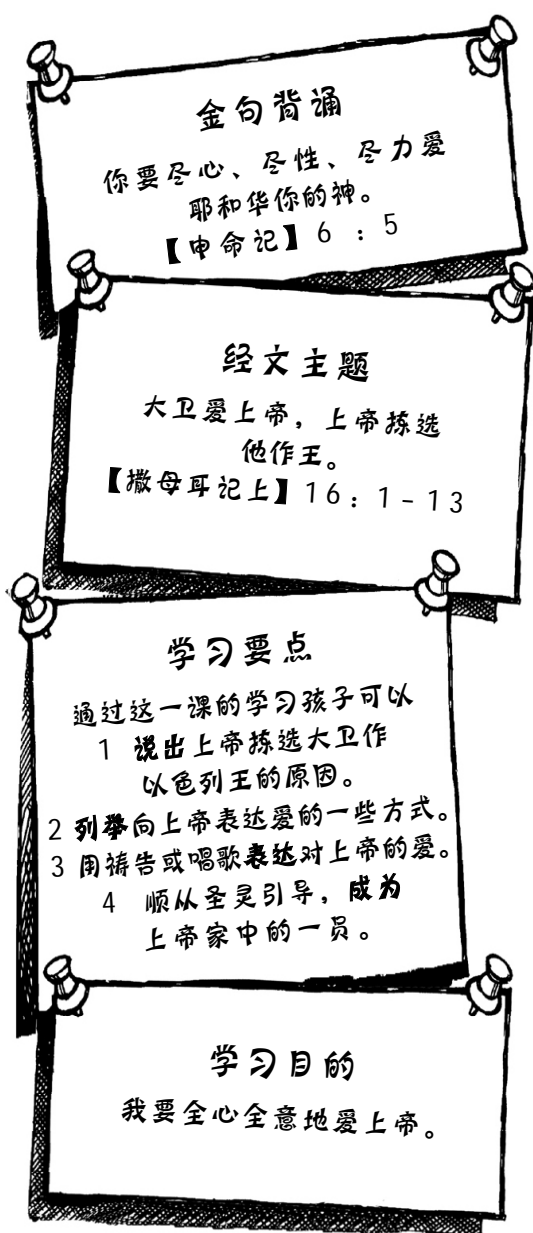 金句背诵
你要尽心、尽性、尽力爱
耶和华你的神。
【申命记】6 : 5
经文主题
大卫爱上帝，上帝拣选
他作王。
【撒母耳记上】16: 1-13
学习要点
通过这一课的学习孩子可以
1 说出上帝拣选大卫作
以色列王的原因。
2 列举向上帝表达爱的一些方式。
3 用祷告或唱歌表达对上帝的爱。
4 顺从圣灵引导，成为
上帝家中的一员。
学习目的
我要全心全意地爱上帝。